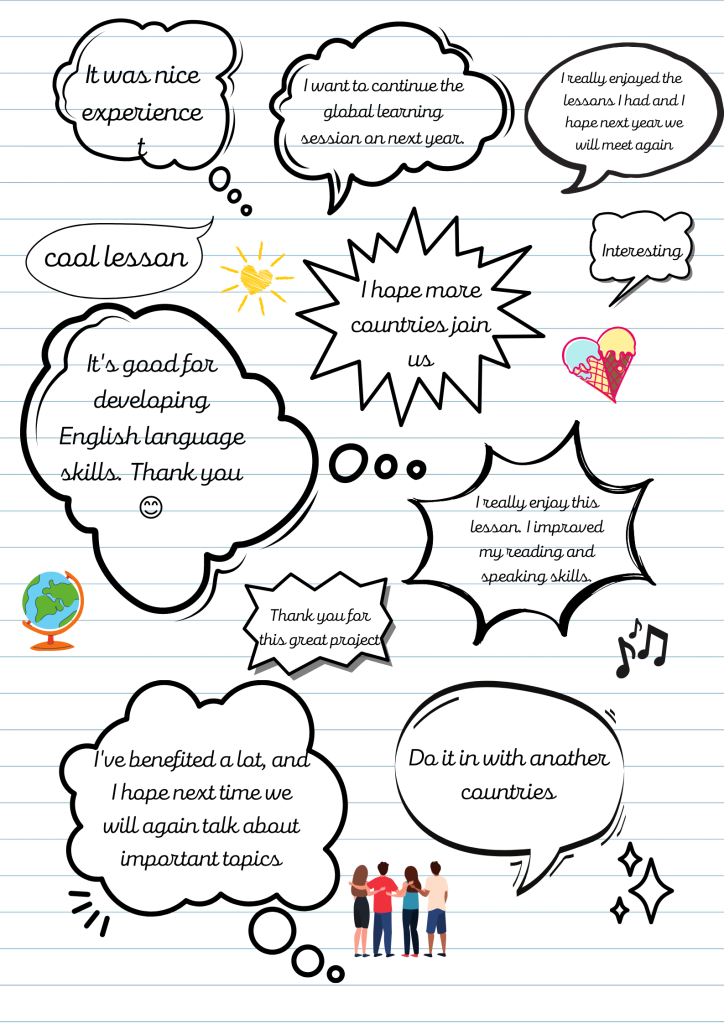 It was nice
experience
t
I want to continue the
global learning
session on next year.
I really enjoyed the
lessons I had and I
hope next year we
will meet again
cool lesson
Interesting
I hope more
countries join
us
It's good for
developing
English language
skills. Thank you
😊
I really enjoy this
lesson. I improved
my reading and
speaking skills.
Thank you for
this great project
I've benefited a lot, and
I hope next time we
will again talk about
important topics
Do it in with another
countries